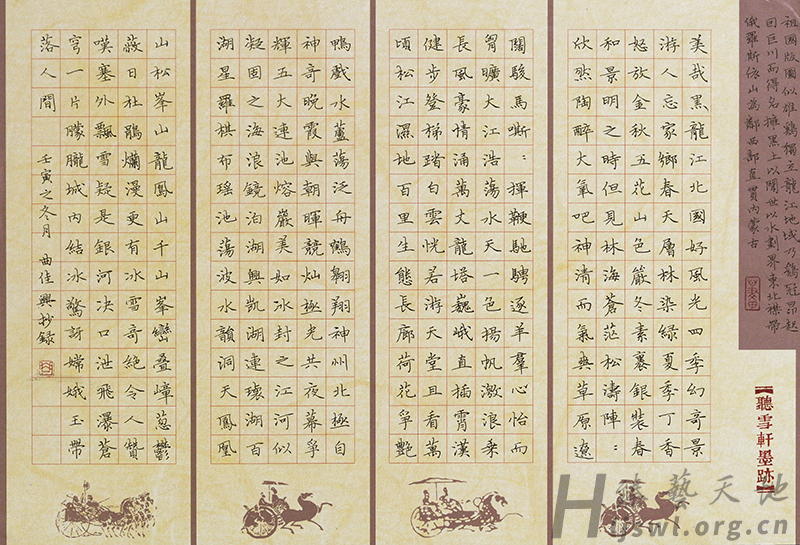 祖國版圖似雄鷄獨立龍江地域乃鷄冠昂起
因巨川而得名擁黑土以闊世以水劃界東北襟帶
俄羅斯依山為鄰西部直貫內蒙古
【聽雪軒墨跡】
美哉黑龍江北國好風光四季幻奇景
游人忘家鄉春天層林染綠夏季丁香
怒放金秋五花山色嚴冬素裹銀裝春
和景明之時但見林海蒼茫松濤陣:
欣然陶醉大氣吧神清而氣爽草原遼
闊駿馬嘶:揮鞭馳騁逐羊羣心怡而
胷曠大江浩蕩水天一色揚帆激浪乘
長風豪情涌萬丈龍塔巍峨直插霄漢
健步登梯踏白雲恍若游天堂且看萬
頃松江濕地百里生態長廊荷花爭艷
鴨戲水蘆蕩泛舟鶴翱翔神州北極自
神奇晚霞與朝暉競燦極光共夜幕爭
輝五大連池熔巖美如冰封之江河似
凝固之海浪鏡泊湖興凱湖連環湖百
湖星羅棋布瑤池蕩波水韻洞天鳳凰
山松峯山龍鳳山千山峯巒叠嶂葱鬱
蔽日杜鵑爛漫更有冰雪奇絶令人贊
嘆塞外飄雪疑是銀河決口泄飛瀑蒼
穹一片朦朧城內結冰驚訝嫦娥玉帶
落人間
壬寅之冬月 曲佳興抄錄
藝天地
jswl.org.cn